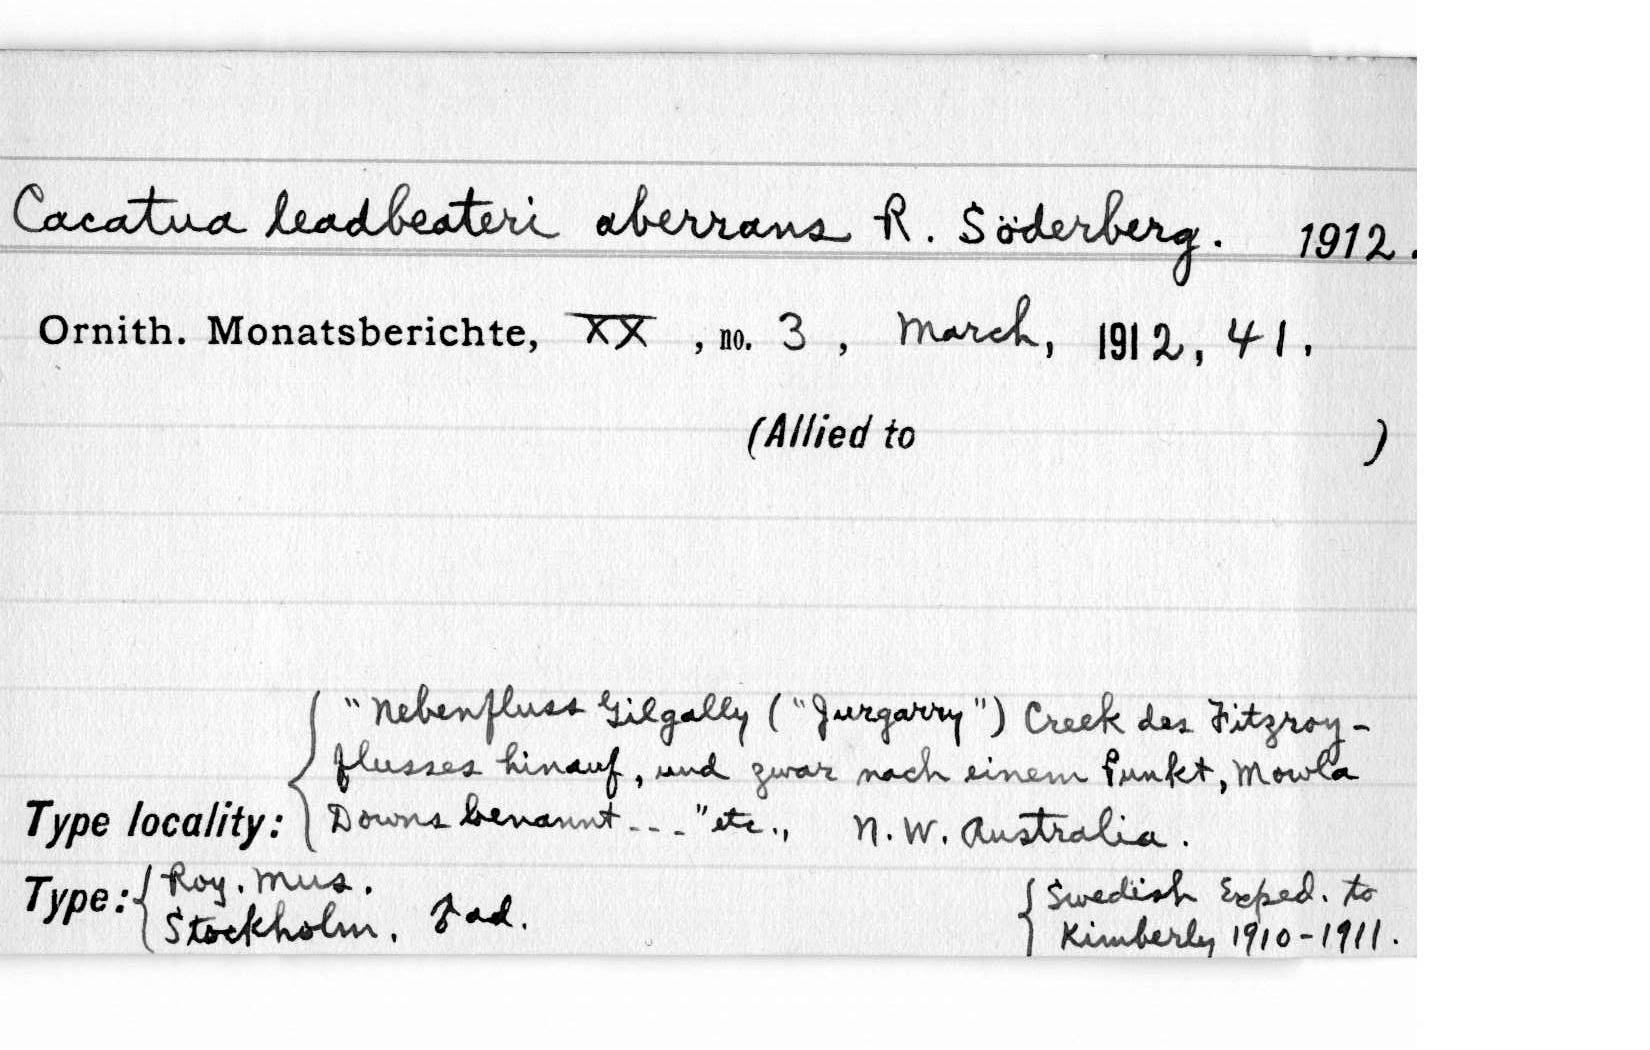 Cacatua leadbeateri aberrans R. Söderberg. 1912.
Ornith. Monatsberichte, XX, no. 3, March, 1912, 41.
(Allied to )
"Nebenfluss Gilgally ("Jurgarry") Creek des Fitzroy-
flusses hinauf, und zwar nach einem Punkt, Mowla
Type locality: Downs benannt ---" etc., N. W. Australia.
Type: Roy. Mus. Swedish Exped. to
Stockholm. ad. Kimberly 1910-1911.